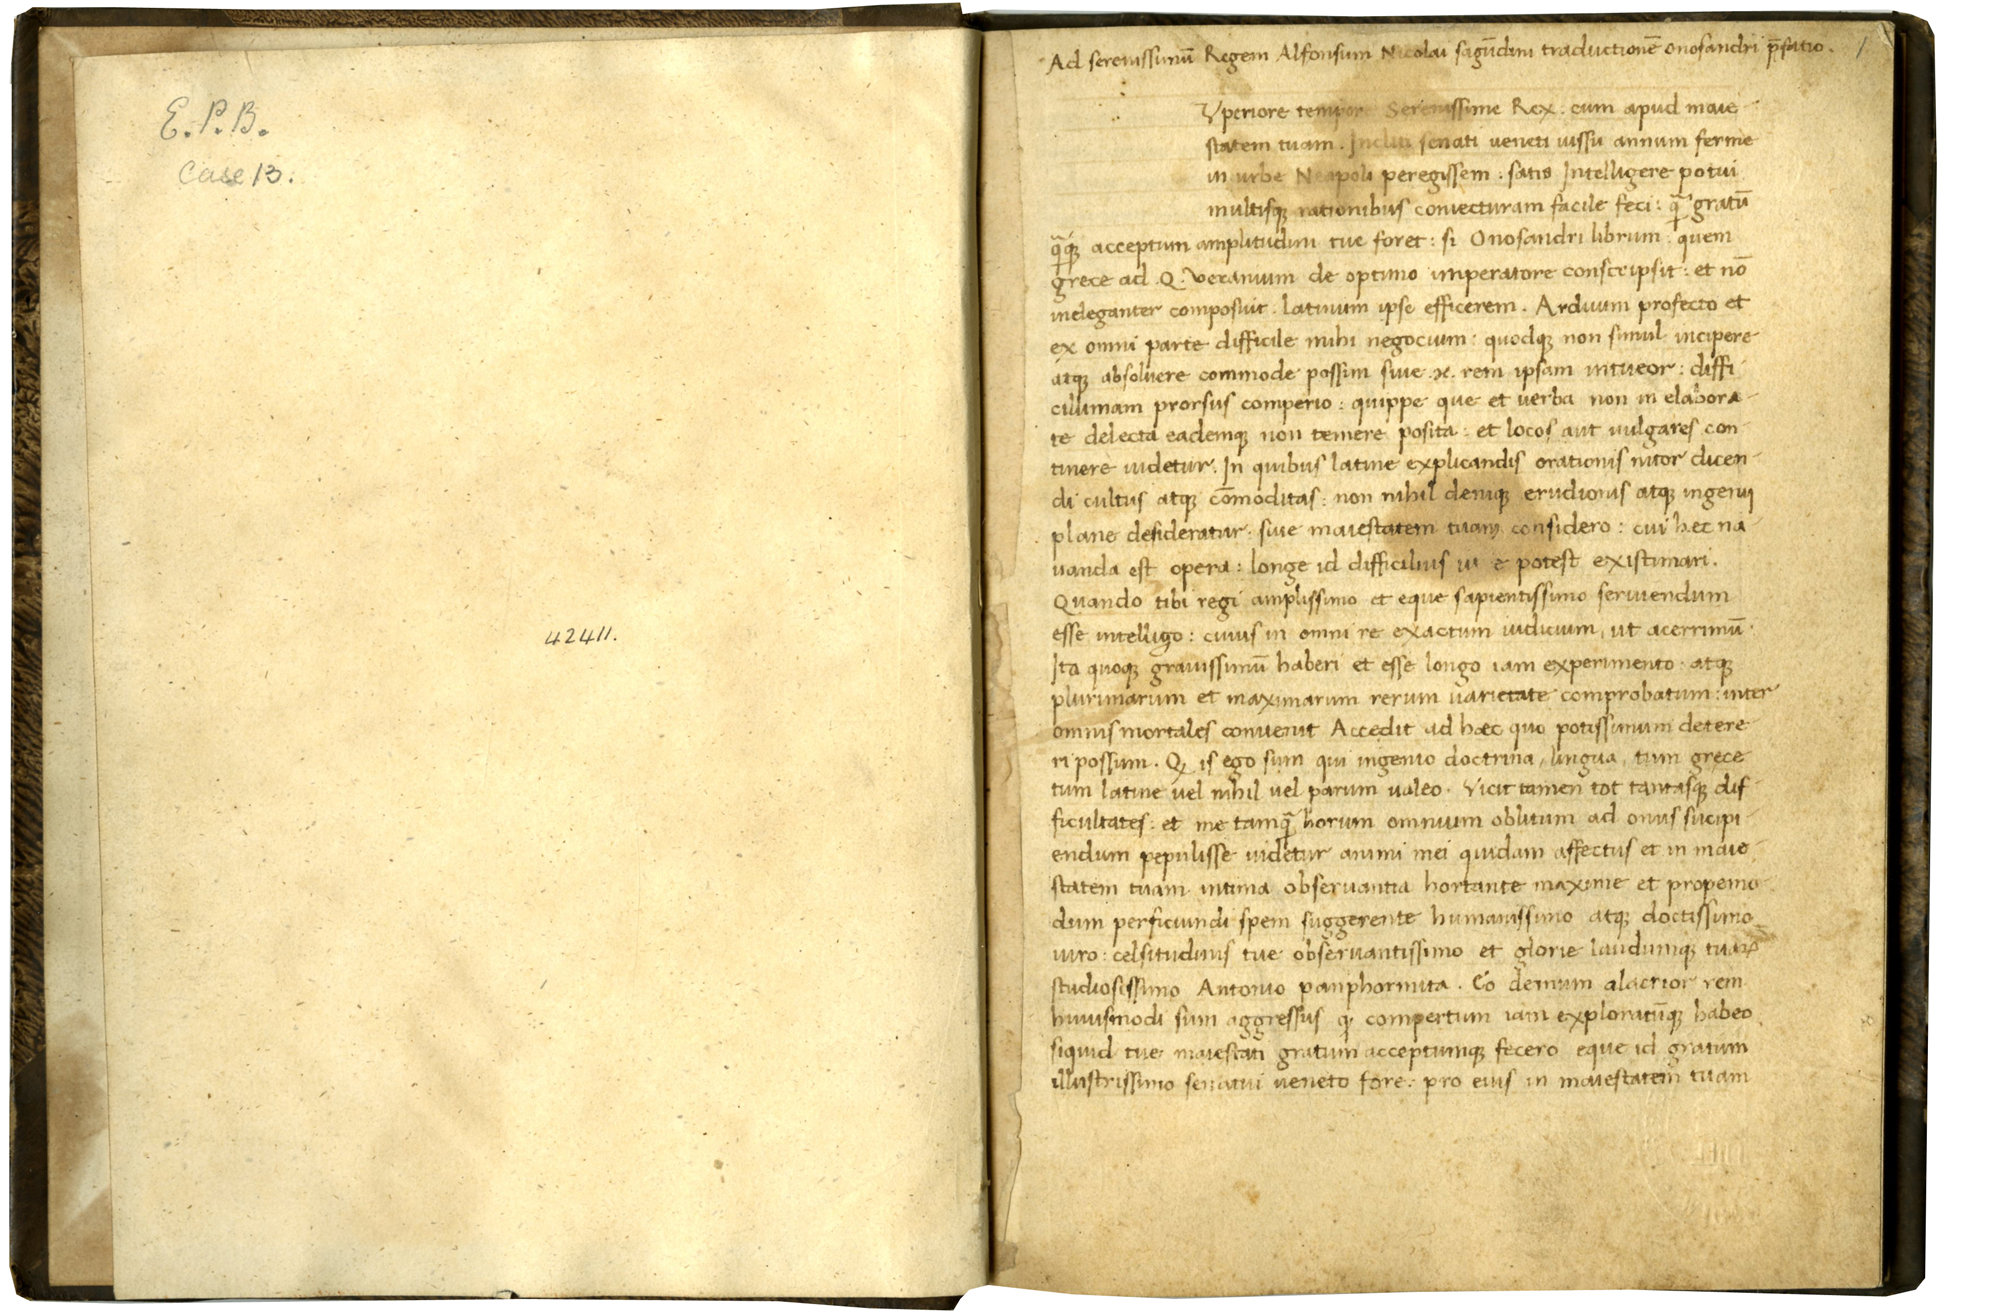 E. P. B.
Case 13.
42411.
Ad serenissimū Regem Alfonsum Nicolai sagūdini traductionē onosandri p̄fatio. 1
Yperiore tempore Serenissime Rex. cum apud maie
statem tuam. Incliti senati veneti iussu annum ferme
in urbe Neapoli peregissem: satis Intelligere potui
multisqꝫ rationibus coniecturam facile feci: q̄ gratū
q̄qꝫ acceptum amplitudini tue foret: si Onosandri librum. quem
grece ad .Q. veranium de optimo imperatore conscripsit: et nō
ineleganter composuit. latinum ipse efficerem. Arduum profecto et
ex omni parte difficile mihi negocium: quodqꝫ non simul incipere
atqꝫ absoluere commode possim siue .n. rem ipsam intueor: diffi
cilimam prorsus comperio: quippe que et verba non in elabora
te delecta eademqꝫ non temere posita: et locos aut uulgares con
tinere uidetur. In quibus latine explicandis orationis nitor dicen
di cultus atqꝫ cōmoditas: non nihil deniqꝫ erudionis atqꝫ ingenij
plane desideratur. siue maiestatem tuam considero: cui hec na
uanda est opera: longe id difficilius potest existimari.
Quando tibi regi amplissimo et eque sapientissimo seruiendum
esse intelligo: cuius in omni re exactum iudicium, ut acerrimū
Ita quoqꝫ grauissimū haberi et esse longo iam experimento. atqꝫ
plurimarum et maximarum rerum uarietate comprobatum: inter
omnis mortales conuenit Accedit ad hæc quo potissimum detere
ri possum. Qꝫ is ego sum qui ingenio doctrina, lingua, tum grece
tum latine uel nihil uel parum ualeo. Vicit tamen tot tantasqꝫ dif
ficultates: et me tamq̄ horum omnium oblitum ad onus sucipi
endum pepulisse uidetur animi mei quidam affectus et in maie
statem tuam intima obseruantia hortante maxime et propemo
dum perficiundi spem suggerente humanissimo atqꝫ doctissimo
uiro: celsitudinis tue obseruantissimo et glorie laudumqꝫ tuaꝝ
studiosissimo Antonio panphormita. Eo demum alacrior rem
huiusmodi sum aggressus qꝫ compertum iam exploratūqꝫ habeo
siquid tue maiestati gratum acceptumqꝫ fecero eque id gratum
illustrissimo senatui veneto fore: pro eius in maiestatem tuam